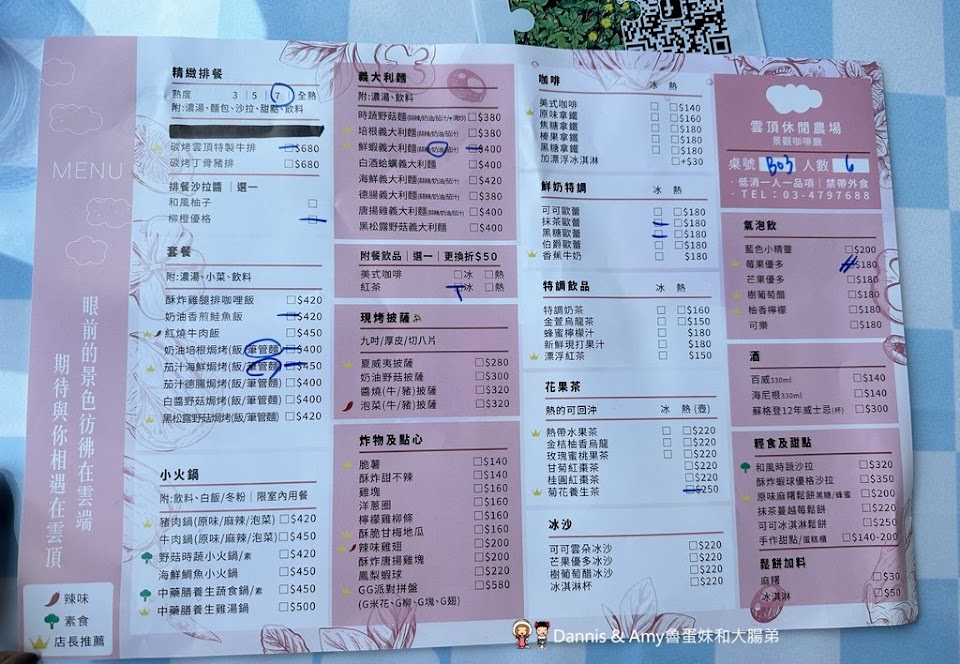 MENU
眼前的景色彷彿在雲端
期待與你相遇在雲頂
辣味
素食
店長推薦
精緻排餐
熟度 3 | 5 | 7 | 全熟
附:濃湯、麵包、沙拉、甜點、飲料
碳烤雲頂特製牛排 $680
碳烤丁骨豬排 $680
排餐沙拉醬 | 選一
和風柚子
柳橙優格
套餐
附:濃湯、小菜、飲料
酥炸雞腿排咖哩飯 $420
奶油香煎鮭魚飯 $420
紅燒牛肉飯 $450
奶油培根焗烤(飯/筆管麵) $400
茄汁海鮮焗烤(飯/筆管麵) $450
茄汁德腸焗烤(飯/筆管麵) $400
白醬野菇焗烤(飯/筆管麵) $400
黑松露野菇焗烤(飯/筆管麵) $420
小火鍋
附:飲料、白飯/冬粉 | 限室內用餐
豬肉鍋(原味/麻辣/泡菜) $420
牛肉鍋(原味/麻辣/泡菜) $450
野菇時蔬小火鍋/素 $420
海鮮鯛魚小火鍋 $450
中藥膳養生蔬食鍋/素 $450
中藥膳養生雞湯鍋 $500
義大利麵
附:濃湯、飲料
時蔬野菇麵 $380
培根義大利麵 $380
鮮蝦義大利麵 $400
白酒蛤蠣義大利麵 $400
海鮮義大利麵 $420
德腸義大利麵 $380
唐揚雞義大利麵 $400
黑松露野菇義大利麵 $400
附餐飲品 | 選一 | 更換折$50
美式咖啡 冰 熱
紅茶 冰 熱
現烤披薩
九吋/厚皮/切八片
夏威夷披薩 $280
奶油野菇披薩 $300
醬燒(牛/豬)披薩 $320
泡菜(牛/豬)披薩 $320
炸物及點心
脆薯 $140
酥炸甜不辣 $140
雞塊 $160
洋蔥圈 $160
檸檬雞柳條 $160
酥脆甘梅地瓜 $160
辣味雞翅 $200
酥炸唐揚雞塊 $200
鳳梨蝦球 $220
GG派對拼盤 $580
(G米花、G柳、G塊、G翅)
咖啡 冰 熱
美式咖啡 $140
原味拿鐵 $160
焦糖拿鐵 $180
榛果拿鐵 $180
黑糖拿鐵 $180
加漂浮冰淇淋 +$30
鮮奶特調 冰 熱
可可歐蕾 $180
抹茶歐蕾 $180
黑糖歐蕾 $180
伯爵歐蕾 $180
香蕉牛奶 $180
特調飲品 冰 熱
特調奶茶 $160
金萱烏龍茶 $150
蜂蜜檸檬汁 $180
新鮮現打果汁 $180
漂浮紅茶 $150
花果茶
熱的可回沖 冰 熱(壺)
熱帶水果茶 $220
金桔柚香烏龍 $220
玫瑰蜜桃果茶 $220
甘菊紅棗茶 $220
桂圓紅棗茶 $220
菊花養生茶 $250
冰沙
可可雲朵冰沙 $220
芒果優多冰沙 $220
樹葡萄醋冰沙 $220
冰淇淋杯 $220
雲頂休閒農場
景觀咖啡廳
桌號 B03 人數 6
·低消一人一品項 | 禁帶外食
·TEL：03-4797688
氣泡飲
藍色小精靈 $200
莓果優多 $180
芒果優多 $180
樹葡萄醋 $180
柚香檸檬 $180
可樂 $180
酒
百威330ml $140
海尼根330ml $140
蘇格登12年威士忌(杯) $300
輕食及甜點
和風時蔬沙拉 $320
酥炸蝦球優格沙拉 $350
原味麻糬鬆餅黑糖/蜂蜜 $200
抹茶蔓越莓鬆餅 $220
可可冰淇淋鬆餅 $250
手作甜點/蛋糕櫃 $140-200
鬆餅加料
麻糬 $30
冰淇淋 $50
Dannis & Amy魯蛋妹和大腸弟